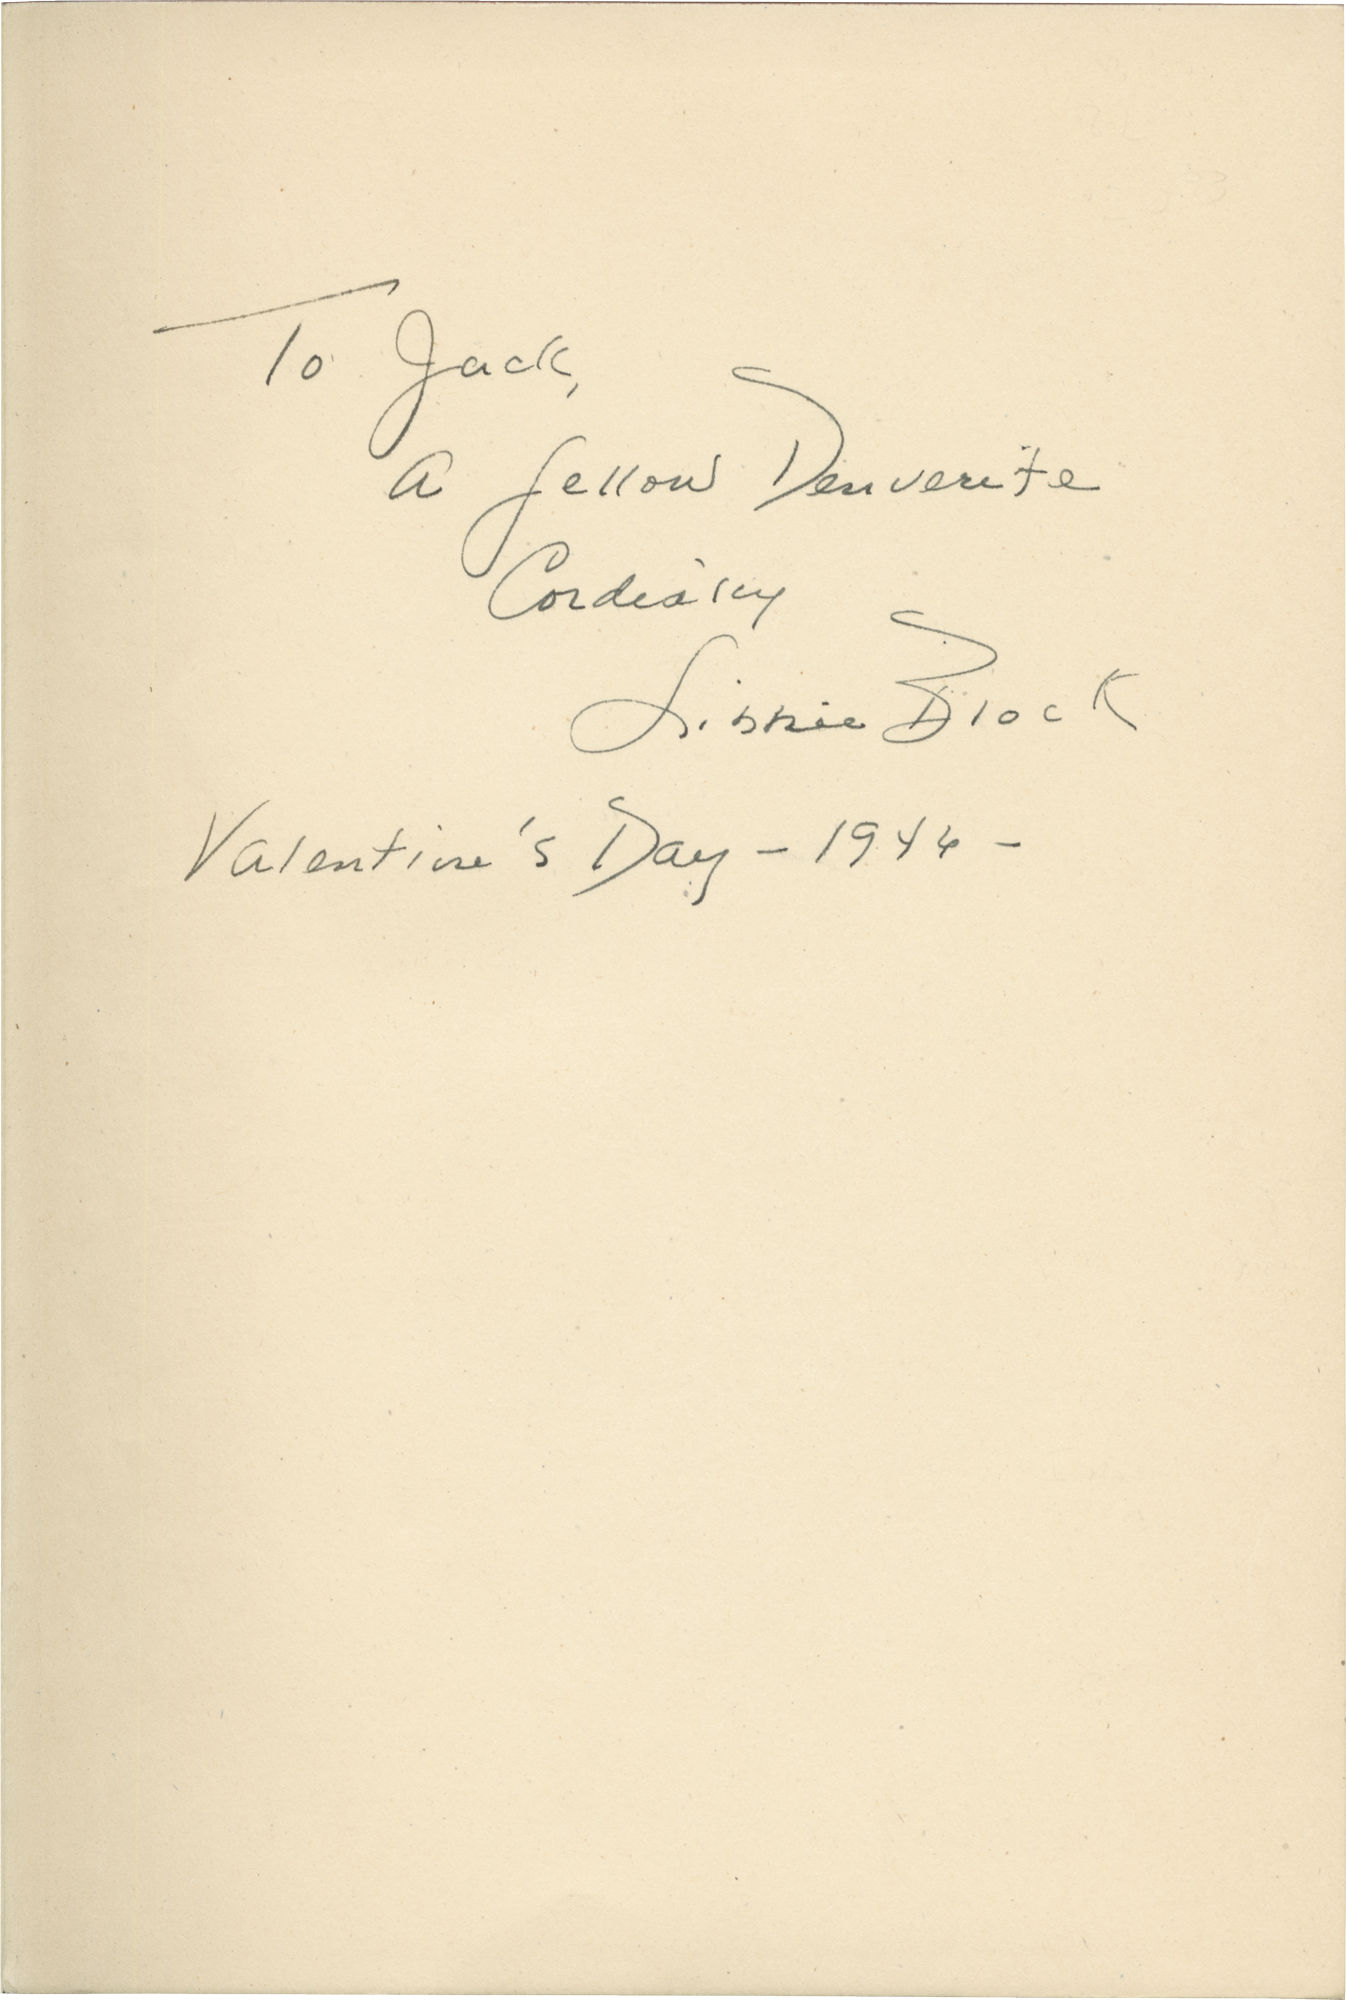 To Jack,
A fellow Denverite
Cordially
Libbie Block
Valentine's Day - 1944 -